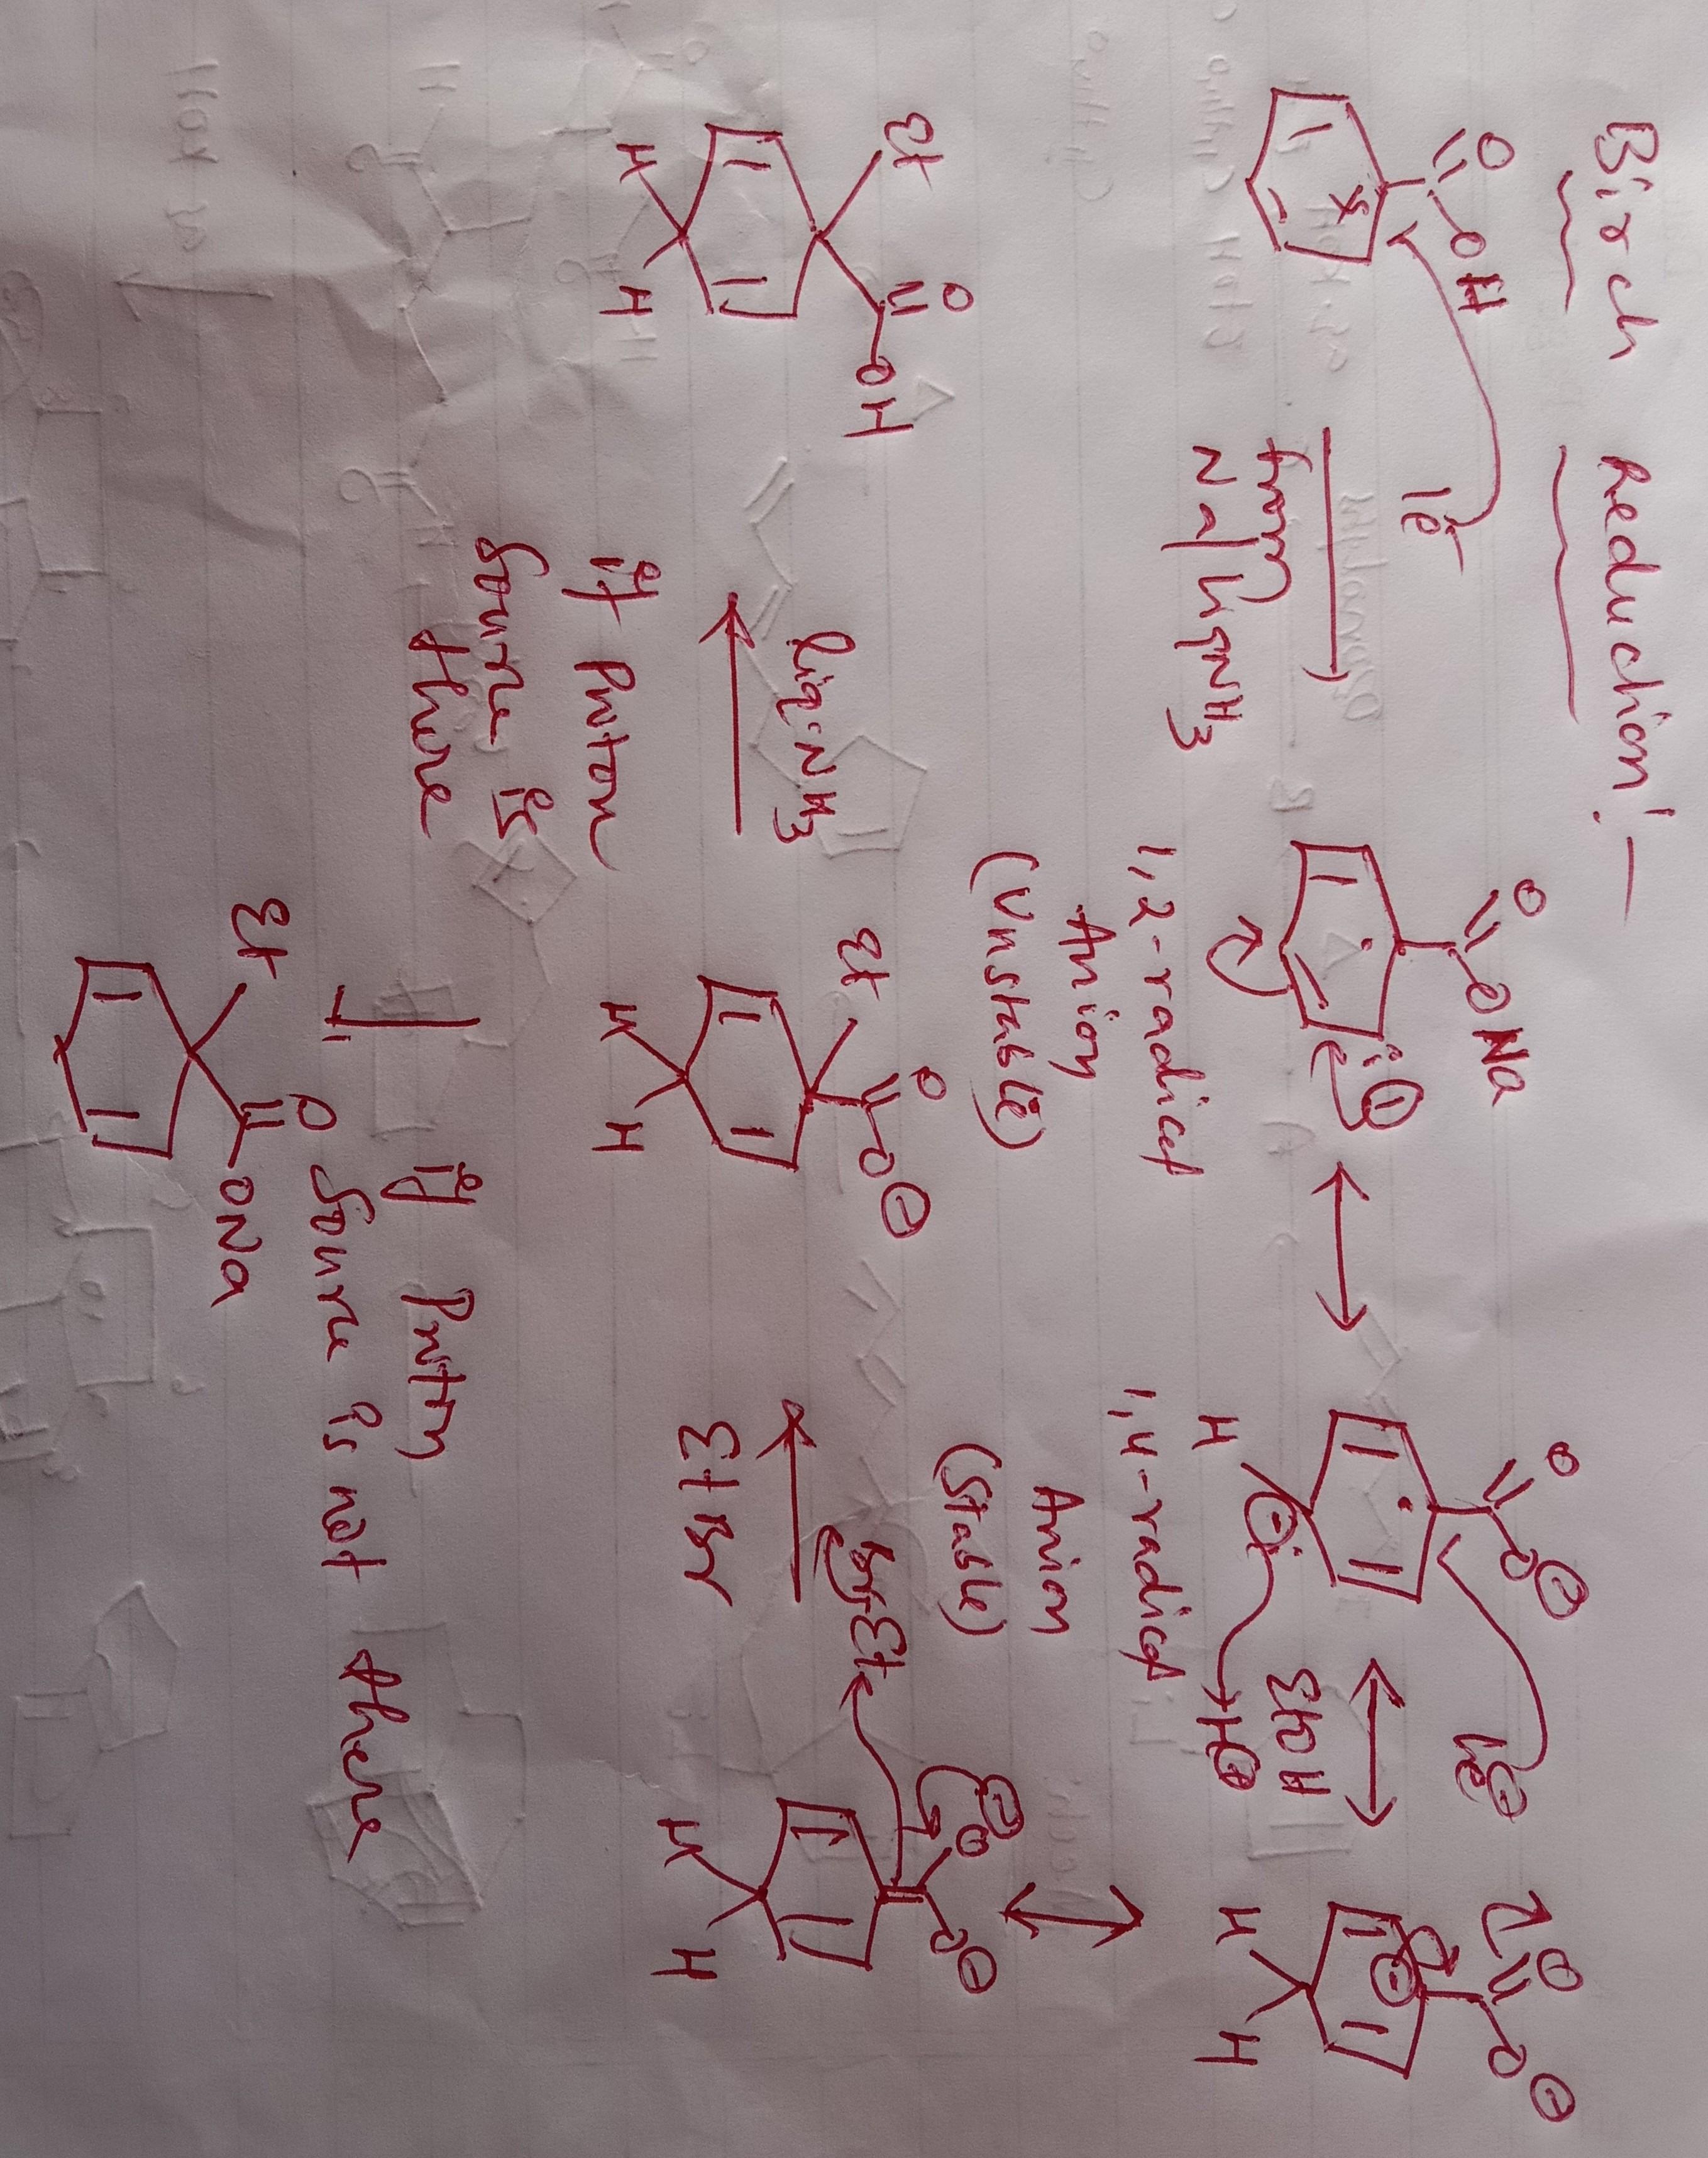 Birch Reduction:-
O
OH
1e-
from
Na/liq NH3
O
ONa
1,2-radical
Anion
(Unstable)
O
O⊖
H
1,4-radical
Anion
(Stable)
1e⊖
EtOH
H⊕
O
O⊖
H H
⊖
O
O⊖
H H
Br-Et
EtBr
Et
O
O⊖
H H
liq. NH3
if Proton
Source is
there
Et
O
OH
H H
if Proton
Source is not there
Et
O
ONa